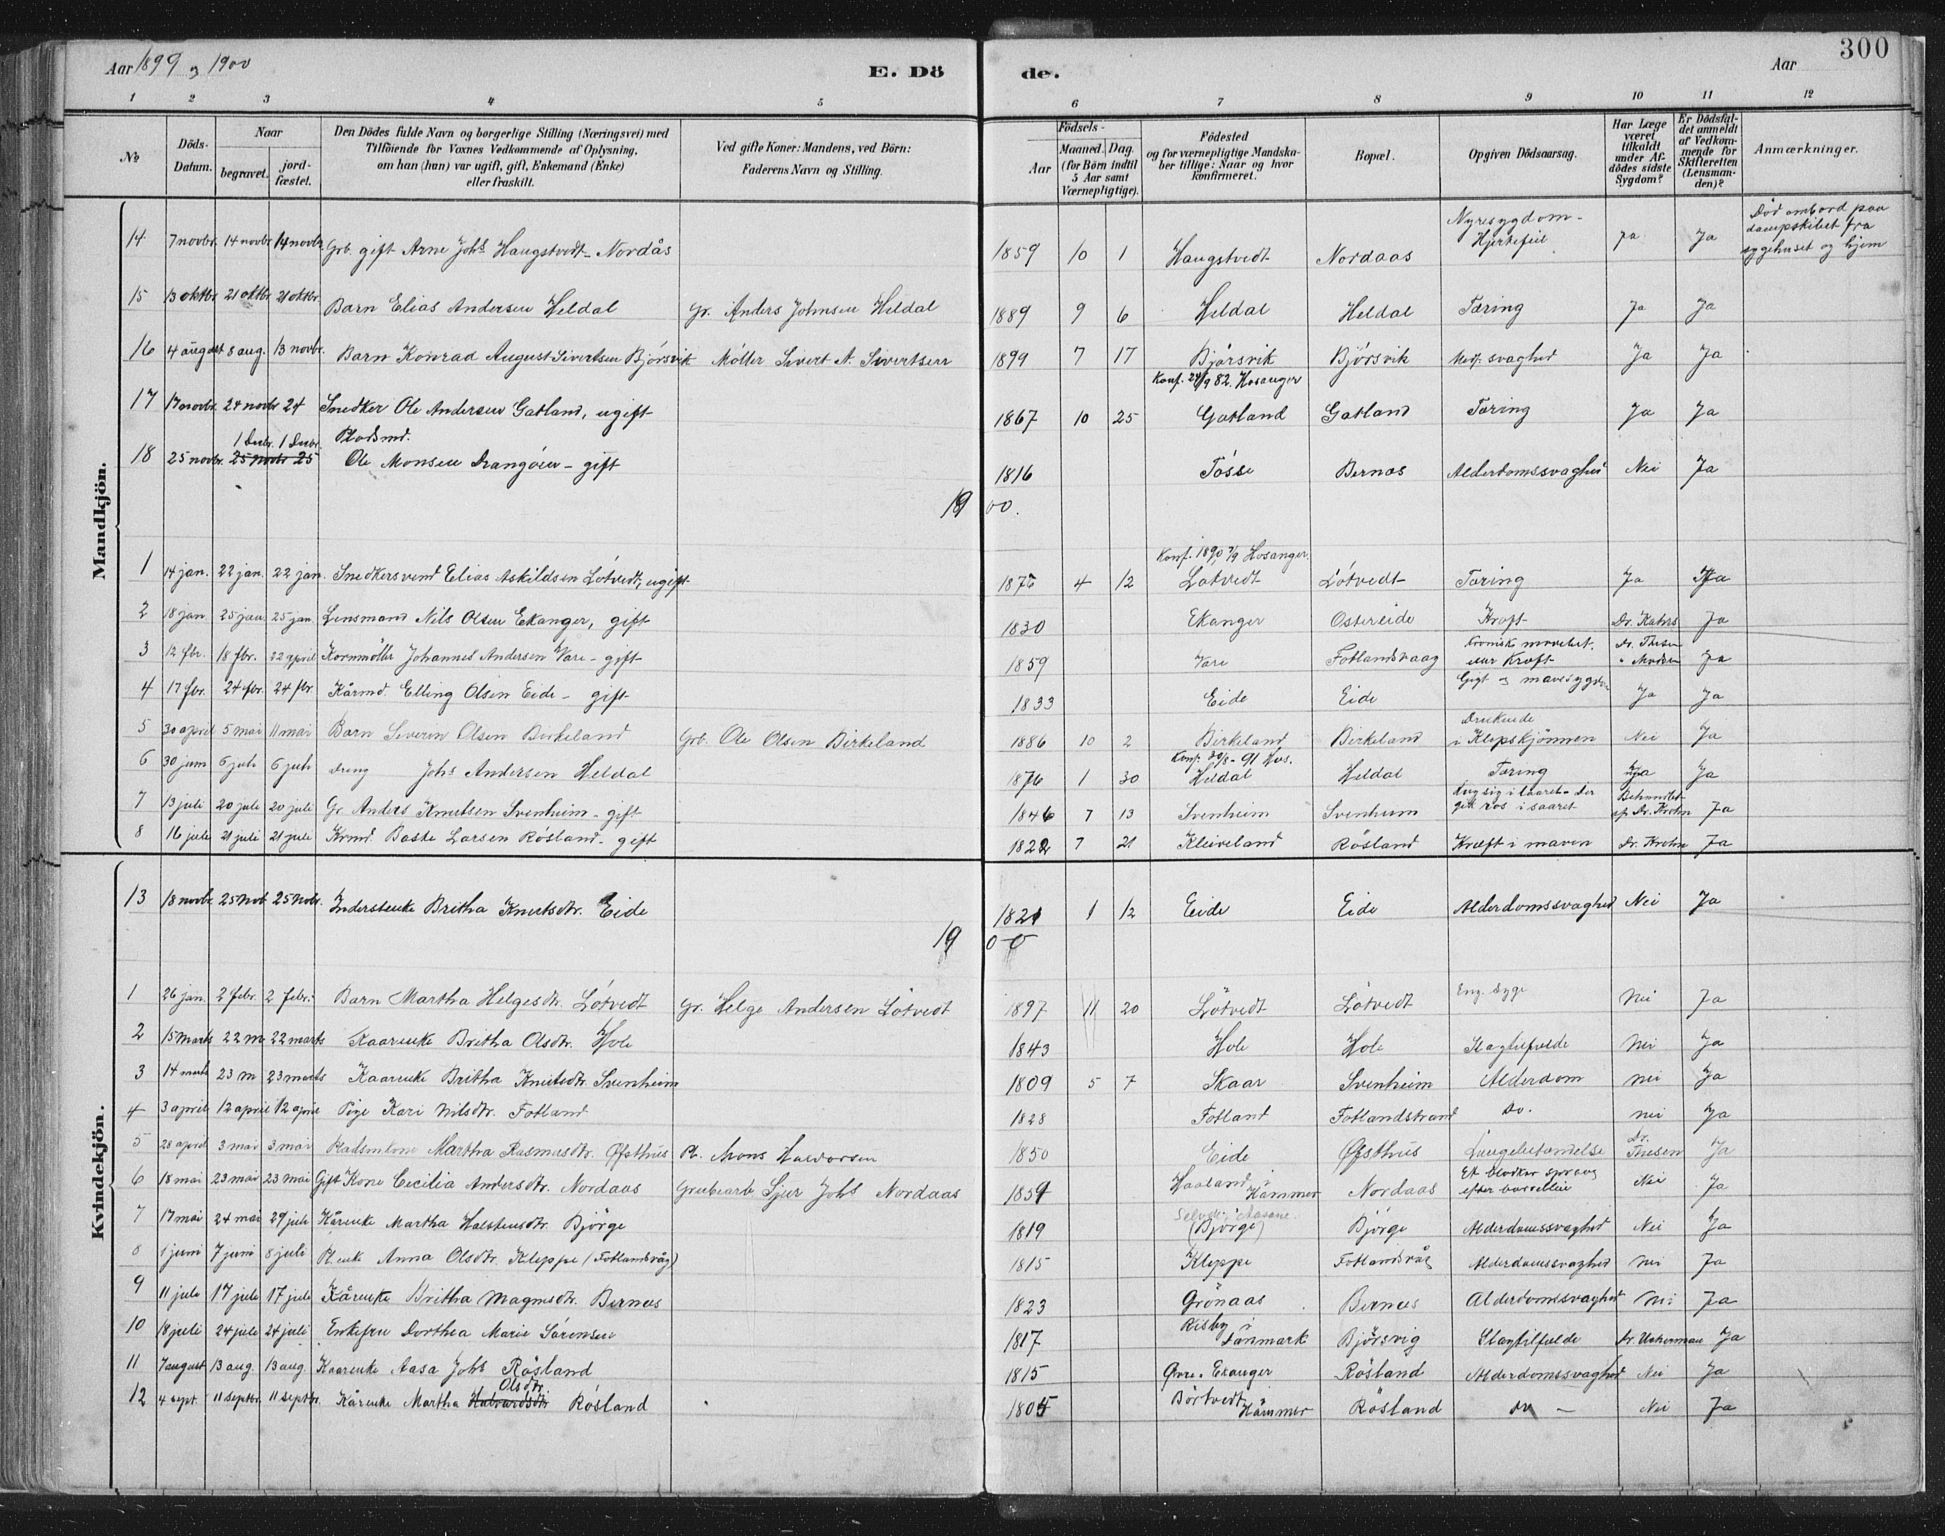 Aar 1899 og 1900 E. Dö de. Aar 300
1 2 3 4 5 6 7 8 9 10 11 12
No Döds-Datum. Naar begravet. jord-fæstet. Den Dödes fulde Navn og borgerlige Stilling (Næringsvei) med Tilföiende for Voxnes Vedkommende af Oplysning, om han (hun) var ugift, gift, Enkemand (Enke) eller fraskilt. Ved gifte Koner: Mandens, ved Börn: Faderens Navn og Stilling. Födsels- Aar Maaned. Dag. (for Börn indtil 5 Aar samt Værnepligtige). Födested og for værnepligtige Mandskaber tillige: Naar og hvor konfirmeret. Bopæl. Opgiven Dödsaarsag. Har Læge været tilkaldt under Afdödes sidste Sygdom? Er Dödsfaldet anmeldt af Vedkommende for Skifteretten (Lensmanden)? Anmærkninger.
Mandkjön.
14 7 novbr. 14 novbr 14 novbr. Grb. gift Arne Johs Haugstvedt - Nordås 1859 10 1 Haugstvedt Nordaas Nyresygdom - Hjertefeil ja Ja Död ombord paa dampskibet fra sygehuset og hjem
15 13 oktbr 21 oktbr 21 oktbr. Barn Elias Andersen Heldal Gr. Anders Johnsen Heldal 1889 9 6 Heldal Heldal Tæring Ja Ja
16 4 august 8 aug. 13 novbr. Barn Konrad August Sivertsen Bjórsvik Möller Sivert A. Sivertsen 1899 7 17 Bjórsvik Bjórsvik Medf. svaghed Ja Ja
17 17 novbr. 24 novbr 24 Snedker Ole Andersen Gatland, ugift 1867 10 25 Konf. 24/9 82. Hosanger Gatland Gatland Tæring Ja Ja
18 25 novbr. 25 novbr 25 1 Decbr. 1 Decbr. Pladsmd. Ole Monsen Drangöien - gift 1816 Tósse Bernæs Alderdomssvaghed Nei Ja
1900.
1 14 jan. 22 jan. 22 jan. Snedkersvend Elias Askildsen Lótvedt, ugift 1875 4 12 Konf. 1890 7/9 Hosanger. Lótvedt Lótvedt Tæring Ja Ja
2 18 jan. 25 jan. 25 jan. Lensmand Nils Olsen Ekanger, gift 1830 Ekanger Ostereide Kræft Dr. Ja
3 12 fbr. 18 fbr. 22 april Kornmöller Johannes Andersen Vare - gift 1859 Vare Fotlandsvaag kronisk eller Kræft Dr. Thesen Ja
4 17 fbr. 24 fbr. 24 fbr. Kårmd. Elling Olsen Eide - gift 1833 Eide Eide Gigt og mavesygdom Ja Ja
5 30 april 5 mai 11 mai Barn Severin Olsen Birkeland Grb. Ole Olsen Birkeland 1886 10 2 Birkeland Birkeland Druknede i Nei Ja
6 30 juni 6 juli 6 juli dreng Johs Andersen Heldal 1876 1 30 Konf. 30/8 - 91 Hos. Heldal Heldal Tæring Ja Ja
7 13 juli 20 juli 20 juli Gr. Anders Knutsen Svenheim - gift 1846 7 13 Svenheim Svenheim Hug sig i laaret - der gik ros i saaret Behandlet af Dr. Krohn Ja
8 16 juli 21 juli 21 juli Krmd. Baste Larsen Rósland - gift 1822 7 21 Kleiveland Rósland Kræft i maven Dr. Krohn Ja
Kvindekjön.
13 18 novbr. 25 Nov. 25 Novbr. Inderstenke Britha Knutsdtr. Eide 1821 1 12 Eide Eide Alderdomssvaghed Nei Ja
1900
1 26 jan. 2 febr. 2 febr. Barn Martha Helgesdtr. Lótvedt Gr. Helge Andersen Lótvedt 1897 11 20 Lótvedt Lótvedt Eng. Syge Nei Ja
2 15 marts 22 m. 22 marts Kaarenke Britha Olsdtr. Hole 1843 Hole Hole Slagtilfælde Nei Ja
3 14 marts 23 m 23 marts Kaarenke Britha Knutsdtr Svenheim 1809 5 7 Skaar Svenheim Alderdom Nei Ja
4 3 april 12 april 12 april Pige Kari Nilsdtr. Fotland 1828 Fotland Fotlandstrand Do. Nei Ja
5 28 april 3 mai 3 mai Pladsmkone Martha Rasmusdtr. Øfsthus Pl. Mons Halvorsen 1850 Eide Øfsthus Lungebetændelse Dr. Thesen Ja
6 18 mai 23 mai 23 mai Gift Kone Cecilia Andersdtr. Nordaas Grubearb. Sjur Johs Nordaas 1859 Haaland i Hammer Nordaas Et blodkar sprang efter barselleie Nei Ja
7 17 mai 24 mai 29 juli Kårenke Martha Halstensdtr. Bjórge 1819 (Bjórge) Bjórge Alderdomssvaghed Nei Ja
8 1 juni 7 juni 8 juli Pl.enk Anna Olsdtr. Kleppe (Fotlandsvåg) 1815 Kleppe Fotlandsvåg Alderdomssvaghed Nei Ja
9 11 juli 17 juli 17 juli Kårenke Britha Magnesdtr. Bernæs 1823 Grónaas Bernæs Alderdomssvaghed Nei Ja
10 18 juli 24 juli 24 juli Enkefru Dorthea Marie Sórensen 1817 Risby i Danmark Bjórsvig Slagtilfælde Dr. Uckerman Ja
11 7 august 13 aug. 13 aug. Kaarenke Aasa Johs Rósland 1815 Øvre - Ekanger Rósland Alderdomssvaghed Nei Ja
12 4 sept. 11 septbr. 11 septbr. Kårenke Martha Halvardsdtr Olsdtr. Rósland 1805 Bórtvedt Hammer Rósland do - Nei Ja